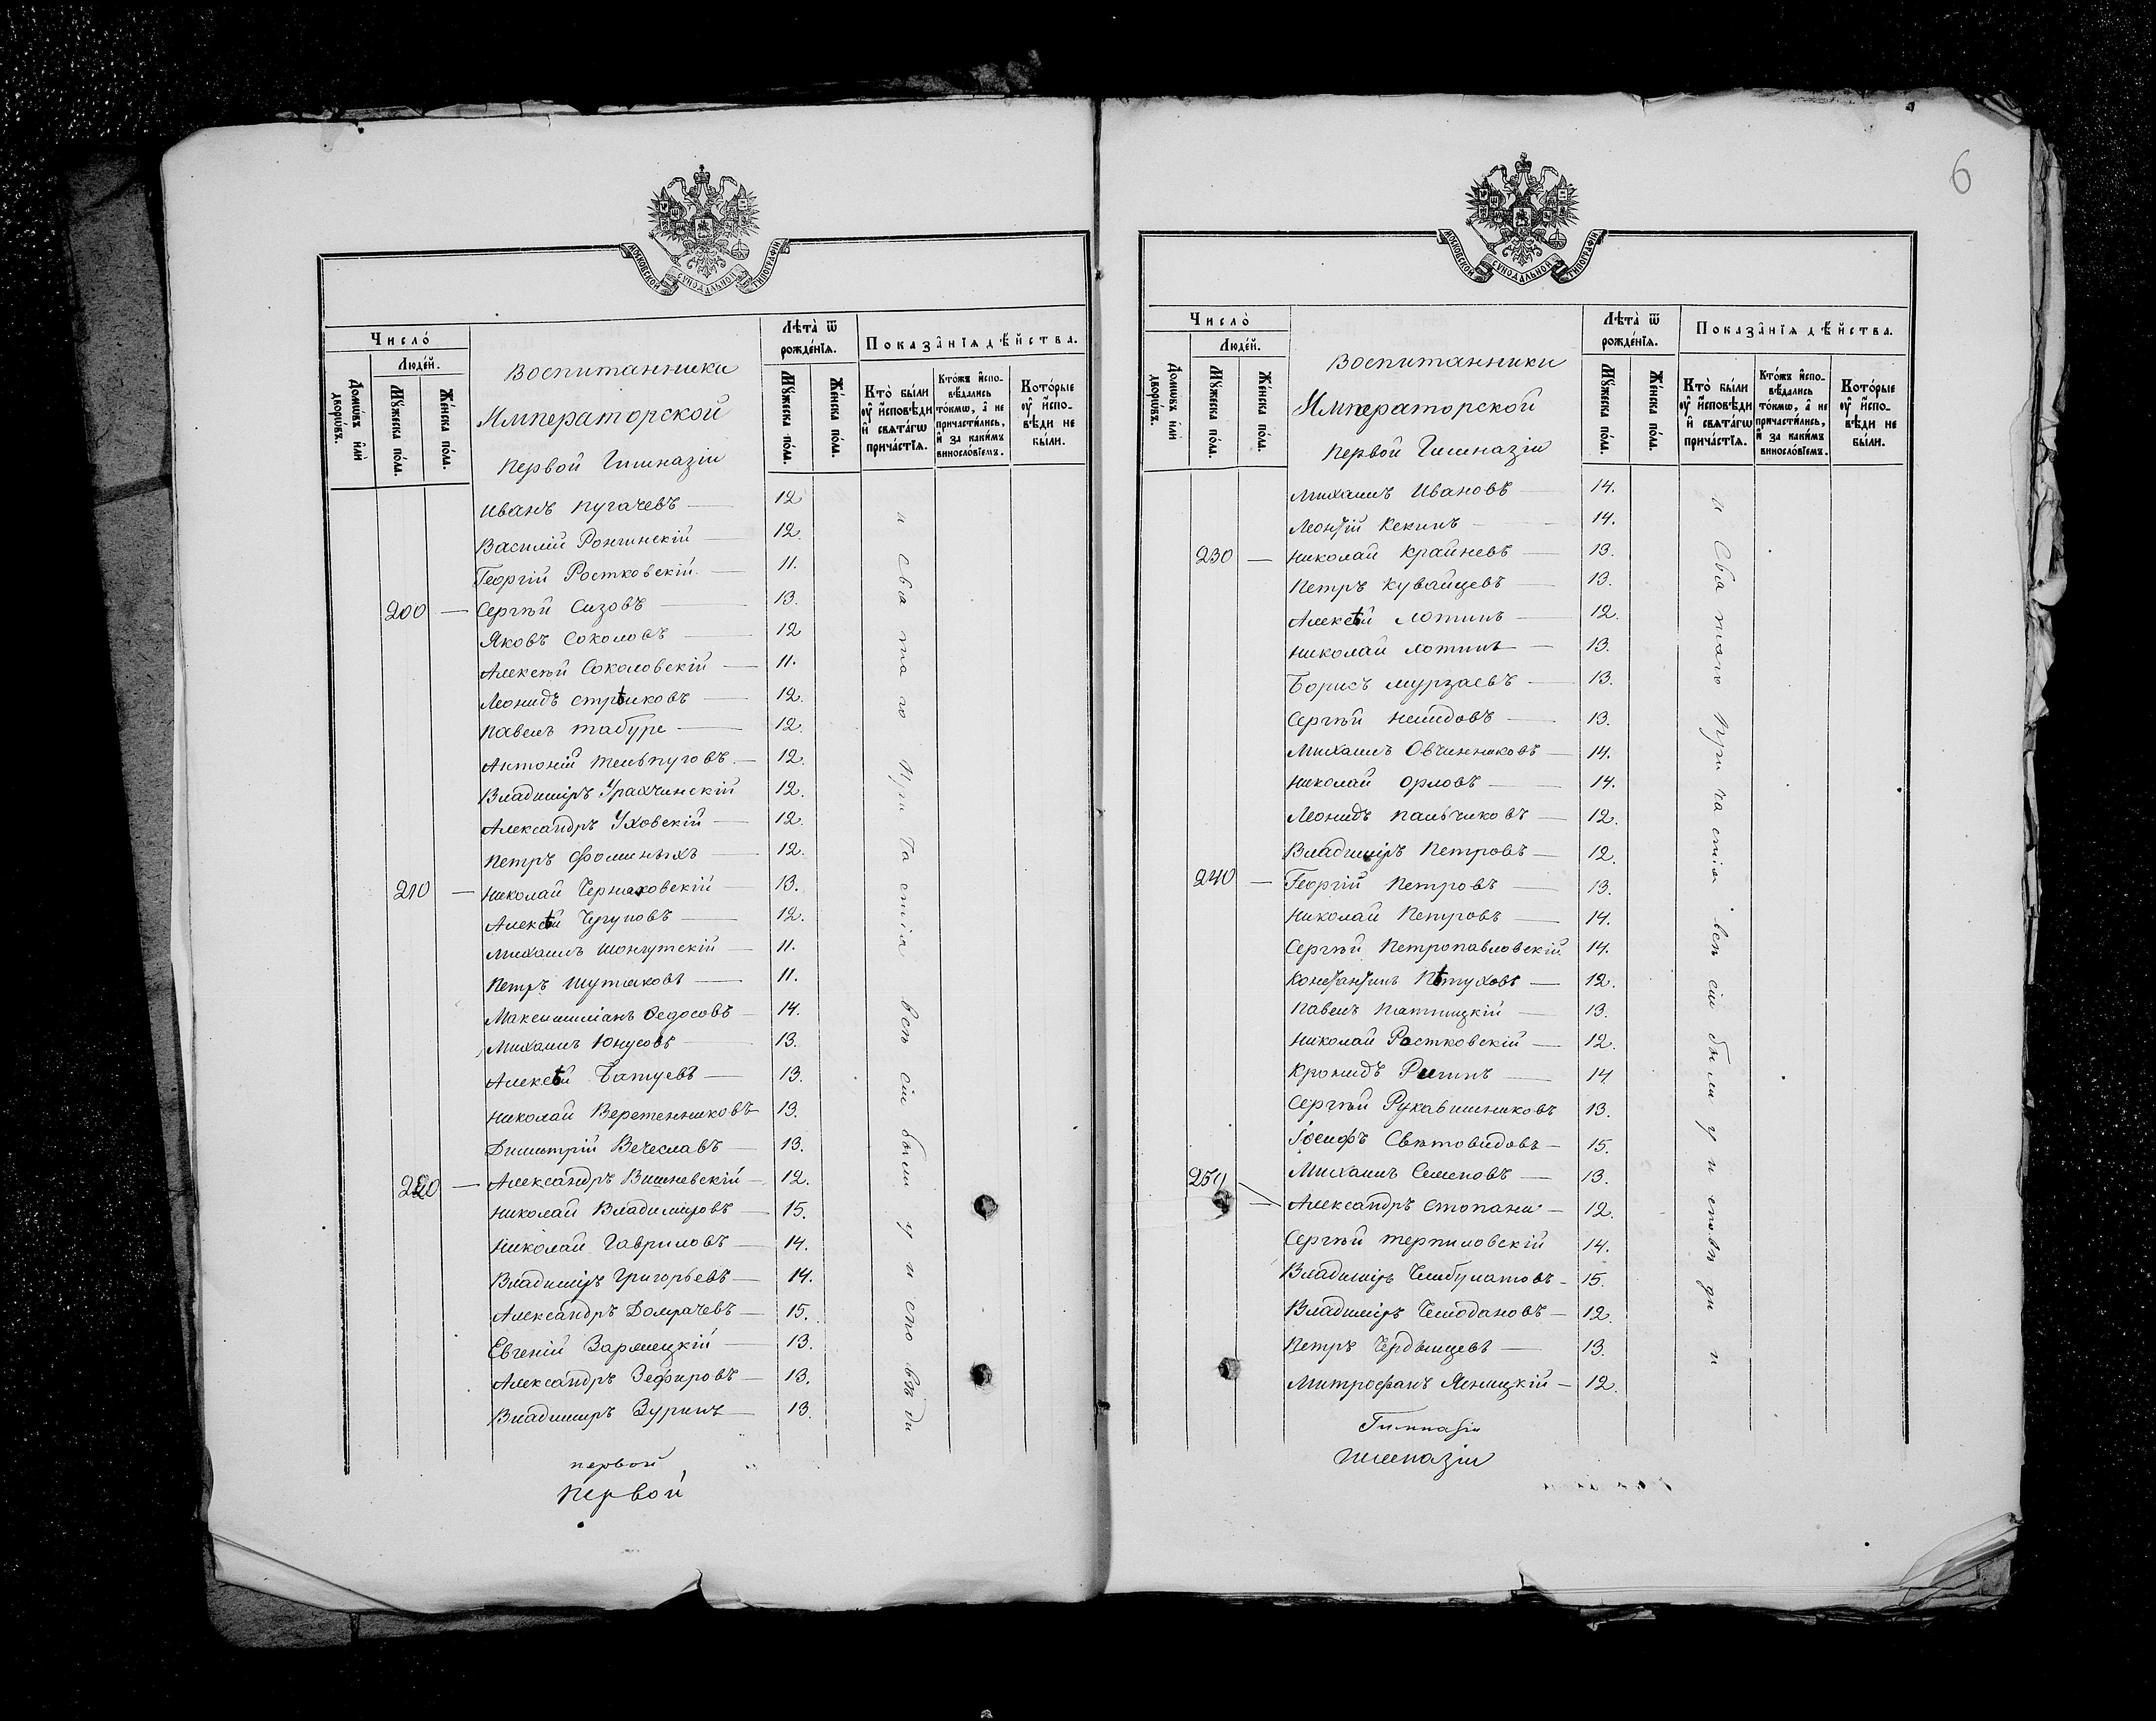 МОСКОВСКОЙ СУНОДАЛЬНОЙ ТИПОГРАФІИ
Число̀
Люде́й.
Домѡ́въ и҆лѝ дворѡ́въ.
Мꙋ́жеска по́ла.
Же́нска по́ла.
Воспитанники
Императорской
Первой Гимназіи
Лѣта̀ ѿ рожде́нїѧ.
Мꙋ́жеска по́ла.
Же́нска по́ла.
Показа̑нїѧ дѣ́йства.
Кто̀ бы́ли ᲂу҆ и҆́споведи и҆ свѧта́гѡ прича́стїѧ.
Кто́жъ и҆спо-вѣ́дались то́кмѡ, а҆ не причасти́лись, и҆ за каки́мъ винословїемъ.
Кото́рые ᲂу҆ и҆́спо-вѣди не бы́ли.
Иванъ Пугачевъ — 12
Василій Ронгинскій — 12.
Георгій Ростковскій — 11.
200 — Сергѣй Сизовъ — 13.
Яковъ Соколовъ — 12
Алексѣй Соколовскій — 11.
Леонидъ Стрѣлковъ — 12.
Павелъ Табуре — 12.
Антоній Тельпуговъ — 12.
Владиміръ 12.
Александръ Уховскій — 12.
Петръ Фоминыхъ — 12.
210 — Николай Черняховскій — 13.
Алексѣй Чугуновъ — 12.
Михаилъ Шонгутскій — 11.
Петръ Шутиковъ — 11.
Максимиліанъ Ѳедосовъ — 14.
Михаилъ Юнусовъ — 13.
Алексѣй Батуевъ — 13.
Николай Веретенниковъ 13.
Димитрій Вечеславъ — 13.
220 — Александръ Вишневскій — 12.
Николай Владиміровъ — 15.
Николай Гавриловъ — 14.
Владиміръ Григорьевъ — 14.
Александръ Домрачевъ — 15.
Евгеній Зарницкій — 13.
Александръ Зефировъ — 13.
Владиміръ Зуринъ — 13.
и Святаго Причастія всѣ сіи были у исповѣди
первой
Первой
6
МОСКОВСКОЙ СУНОДАЛЬНОЙ ТИПОГРАФІИ
Число̀
Люде́й.
Домѡ́въ и҆лѝ дворѡ́въ.
Мꙋ́жеска по́ла.
Же́нска по́ла.
Воспитанники
Императорской
Первой Гимназіи
Лѣта̀ ѿ рожде́нїѧ.
Мꙋ́жеска по́ла.
Же́нска по́ла.
Показа̑нїѧ дѣ́йства.
Кто̀ бы́ли ᲂу҆ и҆́споведи и҆ свѧта́гѡ прича́стїѧ.
Кто́жъ и҆спо-вѣ́дались то́кмѡ, а҆ не причасти́лись, и҆ за каки́мъ винословїемъ.
Кото́рые ᲂу҆ и҆́спо-вѣди не бы́ли.
Михаилъ Ивановъ — 14.
Леонтій Кекинъ — 14.
230 — Николай Крайневъ — 13.
Петръ Кувайцевъ — 13.
Алексѣй Лотинъ — 12.
Николай Лотинъ — 13.
Борисъ Мурзаевъ — 13.
Сергѣй Нелидовъ — 13.
Михаилъ Овчинниковъ — 14.
Николай Орловъ — 14.
Леонидъ Пальчиковъ — 12.
Владиміръ Петровъ — 12.
240 — Георгій Петровъ — 13.
Николай Петровъ — 14.
Сергѣй Петропавловскій 14.
Константинъ Пѣтуховъ — 12.
Павелъ Пятницкій — 13.
Николай Ростковскій — 12.
Кронидъ 14
Сергѣй Рукавишниковъ 13.
Іосифъ Святовидовъ — 15.
Михаилъ Семеновъ — 13.
Александръ Стопани — 12.
Сергѣй Терпиловскій 14.
Владиміръ Чембулатовъ — 15.
Владиміръ Чемодановъ — 12.
Петръ Чердынцевъ — 13.
Митрофанъ Ясницкій — 12.
и Святаго Причастія всѣ сіи были у исповѣди и
Гимназіи
Гимназіи